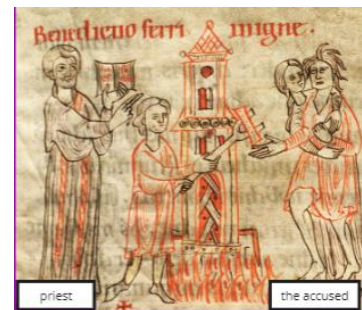 Benedictio ferri inigne.
priest
the accused